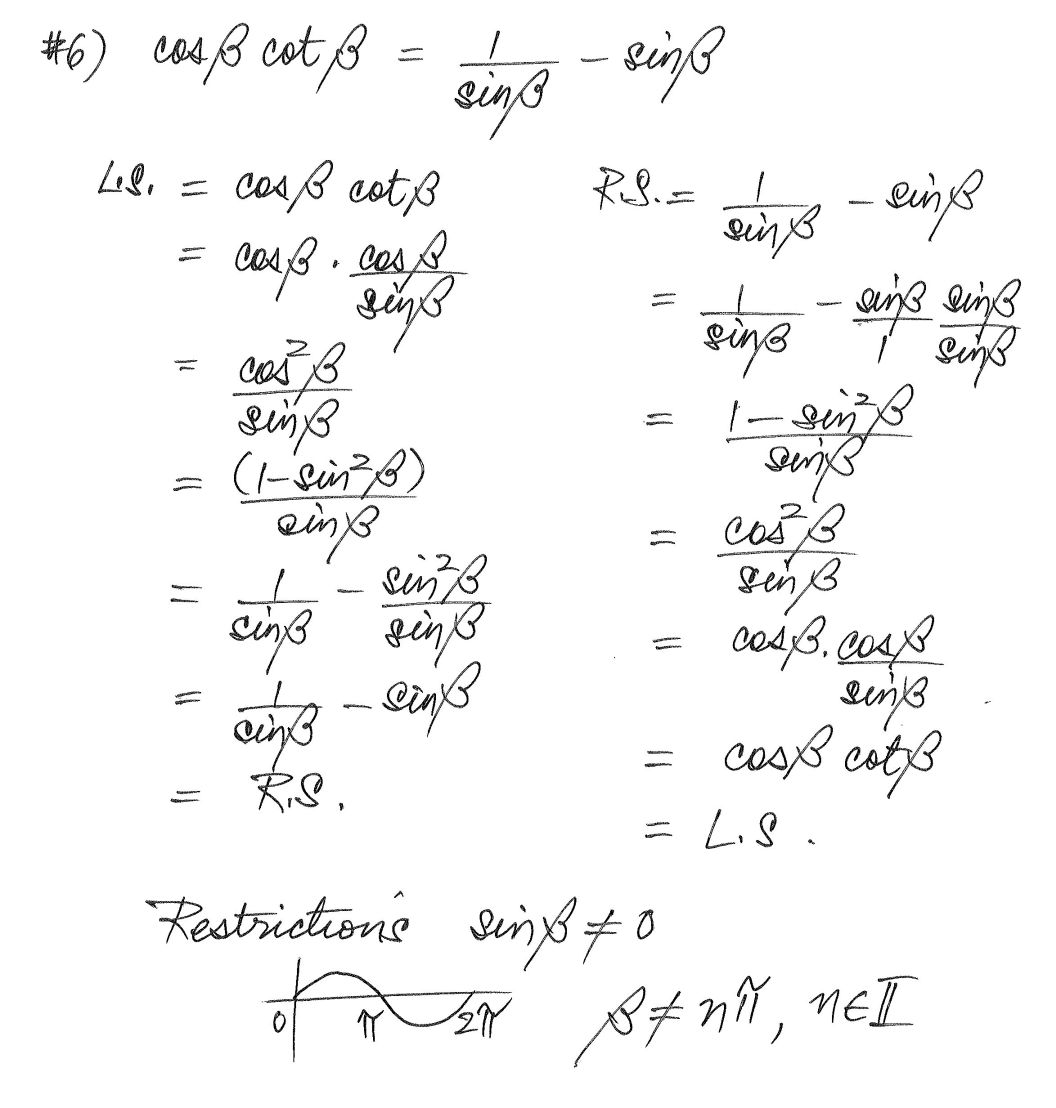 #6) cosβ cotβ = 1/sinβ - sinβ
L.S. = cosβ cotβ
= cosβ · cosβ/sinβ
= cos²β/sinβ
= (1-sin²β)/sinβ
= 1/sinβ - sin²β/sinβ
= 1/sinβ - sinβ
= R.S.
R.S. = 1/sinβ - sinβ
= 1/sinβ - sinβ/1 sinβ/sinβ
= 1-sin²β/sinβ
= cos²β/sinβ
= cosβ · cosβ/sinβ
= cosβ cotβ
= L.S.
Restrictions sinβ ≠ 0
0 π 2π
β ≠ nπ, n∈II